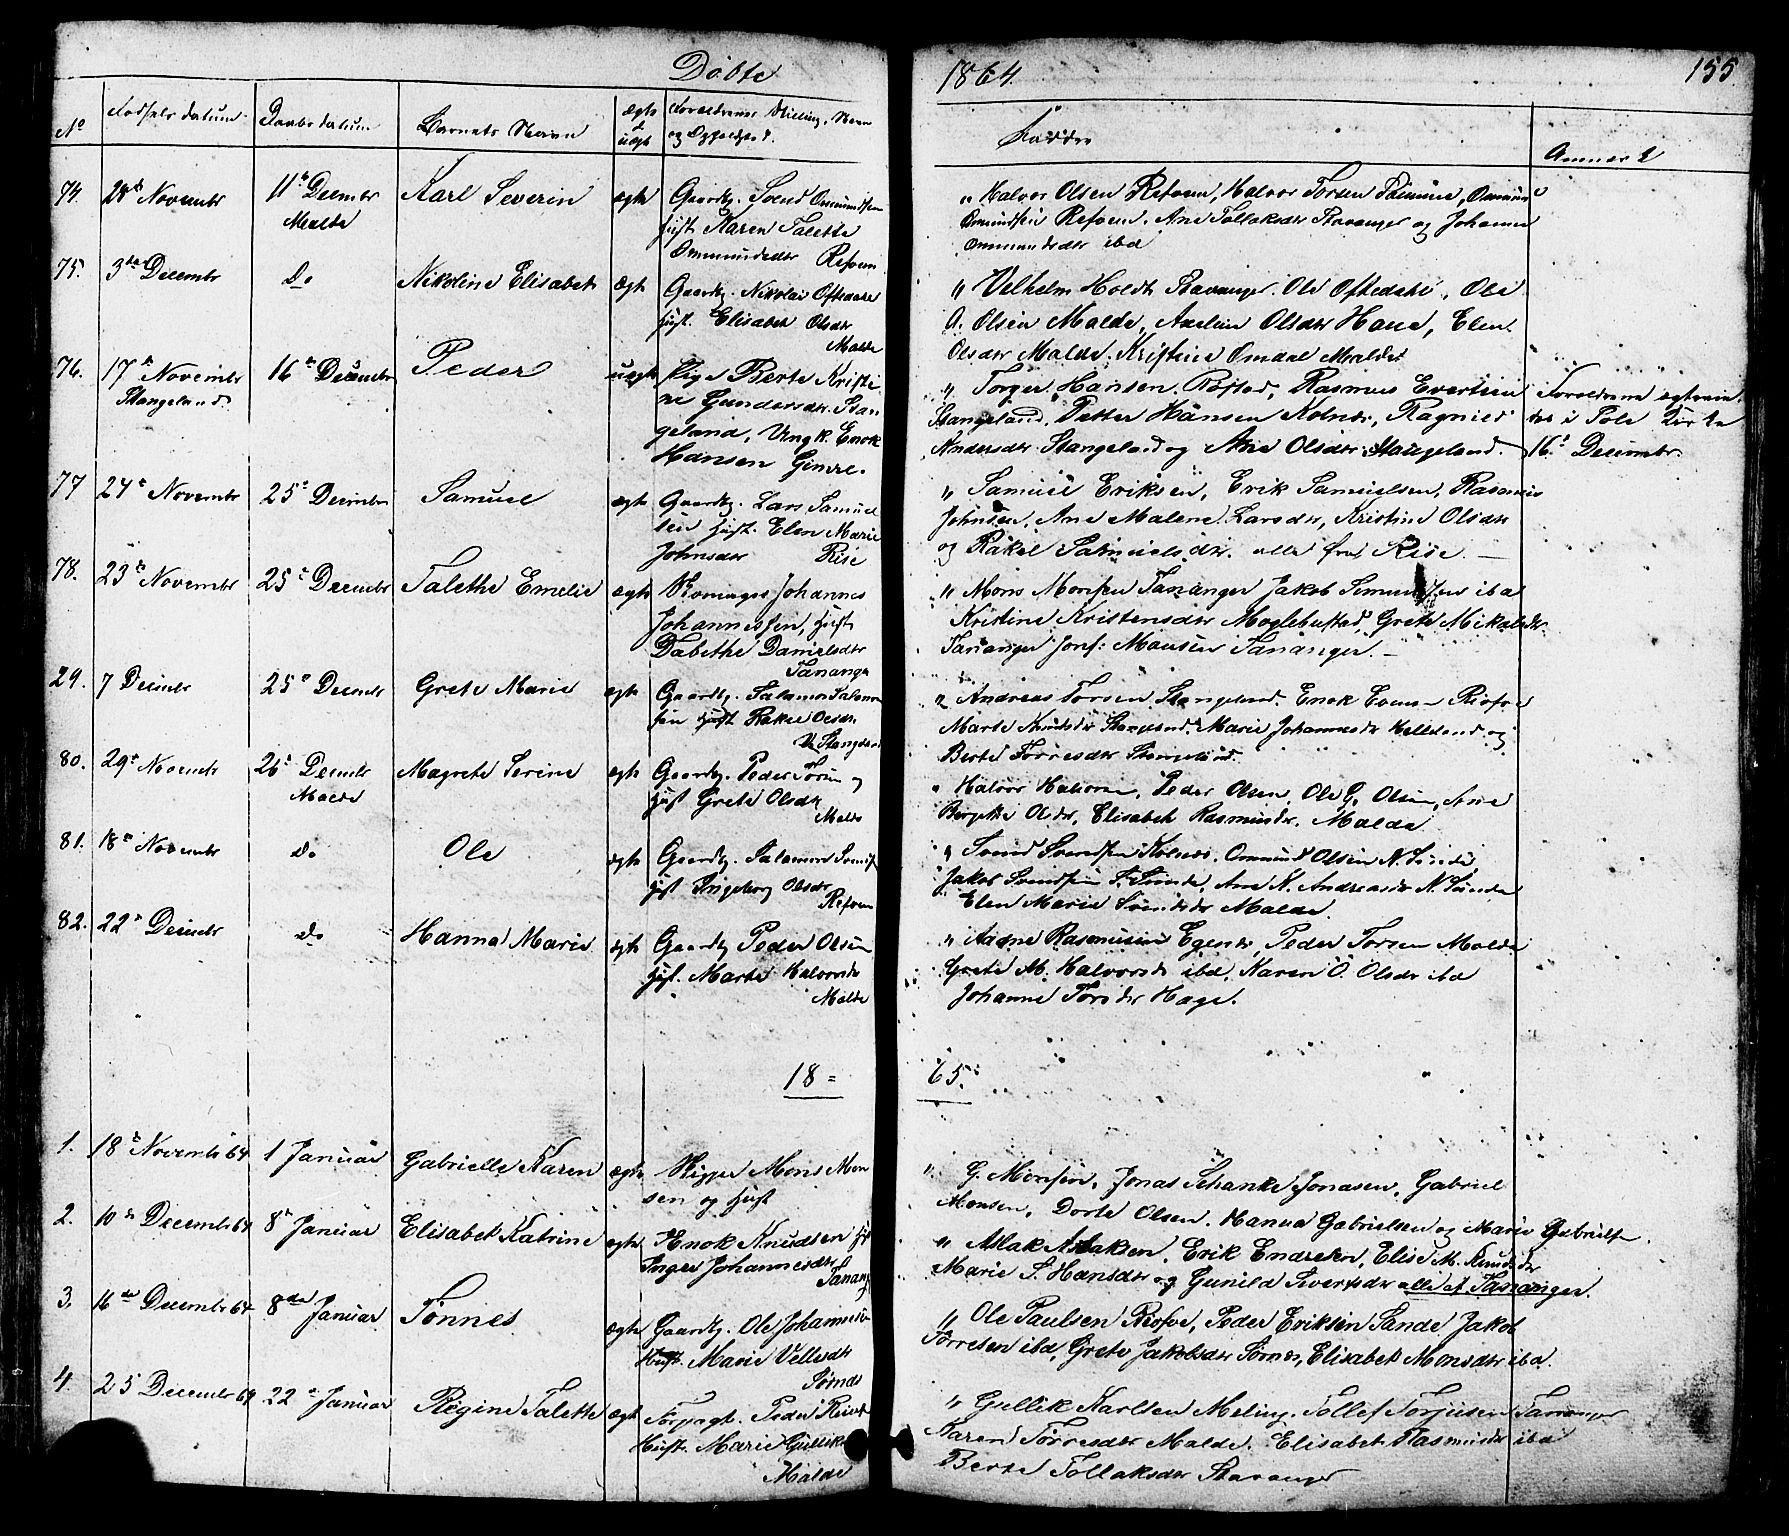 Døbte
1864.
155.
No
Fødsels datum
Daabs datum
Barnets Navn
ægte
uægt
Forældrenes Stilling, Navn
og
Faddre
74.
28de Novembr
11te Decembr
Malde
Karl Severin
ægte
Gaardbg. Svend Omundsen
Hust. Karen Talette
Ommundsdtr
" Halvor Olsen Halvor Torsen
Omundsen Ane Tollaksdtr Stavanger og Johanne
Ommundsdtr ibd
75.
3die Decembr
Do
Nikoline Elisabet
ægte
Gaardbg. Nikolai Oftedal
Hust. Elisabet Olsdtr
Malde
" Velhelm Holdt Stavanger. Ole Oftedahl, Ole
G. Olsen Malde, Olsdtr Haue, Elen
Olsdtr Malde. Kristine Omdal Malde
76.
17de Novembr
Stangeland.
16de Decembr
Peder
uægte
Pige Berte Kristi
ne Gundersdtr. Stan
geland, Ungk. Enok
Hansen Gimre.
" Torger Hansen Røstad, Rasmus Evertsen
Stangeland, Petter Hansen Kolnes, Ragnild
Andersdtr Stangeland og Ane Olsdtr Stangeland.
Forældrene
i Sole Kirke
16de Decembr.
77
24de Novembr
25de Decembr
Samuel
ægte
Gaardbg. Lars Samuel
sen Hust. Elen Marie
Johnsdtr Rise
" Samuel Eriksen, Erik Samuelsen, Rasmus
Johnsen, Ane Malene Larsdtr, Kristine Olsdtr
og Rakel Samuelsdtr. alle fra Risе. —
78.
23de Novembr
25de Decembr
Talethe Emelie
ægte
Johannes
Johannessen, Hust
Tabethe Danielsdtr
Tananger
" Mons Monsen Tananger Jakob ibd
Kristine Kristensdtr Myklebustad, Grete Mikalsdtr
Tananger Jomf: Monsen Tananger. —
79.
7 Decembr
25de Decembr
Grete Marie
ægte
Gaardbg. Salamon Salamon
sen Hust Rakel Olsdtr
Stangeland
" Andreas Torsen Stangeland. Enok
Marte Knudsdtr Stangeland. Marie Johannesdtr Helleland og
Berte Torresdtr Stangeland.
80.
29de Novembr
26de Decembr
Malde
Magrete Serine
ægte
Gaardbg. Peder Torsen og
Hust Grete Olsdtr
Malde
" Halvor Halvorsen, Peder Olsen, Ole G. Olsen, Ane
Bergitte Olsdtr, Elisabet Rasmusdtr. Malde
81.
18de Novembr
Do
Ole
ægte
Gaardbg. Salamon
Hust Ingeborg Olsdtr
" Svend Svendsen Kolnes. Ommund Olsen N. Sunde
Jakob Svendsen S. Sunde, Ane K. Andreasdtr N. Sunde
Elen Marie Svendsdtr Malde.
82.
22de Decembr
Do
Hanna Marie
ægte
Gaardbg Peder Olsen
Hust. Marte Halvorsdtr
Malde
" Aadne Rasmussen Egenes, Peder Torsen Malde
Grete M. Halvorsdtr ibd, Karen O. Olsdtr ibd
Johanne Torsdtr Hage.
18 =
65.
1.
18de Novembr 64
1 Januar
Gabrielle Karen
ægte
Skipper Mons Mon
sen og Hust
" G. Monsen, Jonas Schanke Jonasen, Gabriel
Monsen, Dorte Olsen. Hanna Gabrielsen og Marie Gabrielsen.
2.
10de Decembr 64
8de Januar
Elisabet Katrine
ægte
Enok Knudsen
Inger Johannesdtr
Tanang
" Aslak Aslaksen, Erik Endresen, Elise M. Knudsdtr
Marie S. Hansdtr og Gunild Sivertsdtr alle af Tananger.
3.
16de Decembr 64
8de Januar
Tønnes
ægte
Gaardbg. Ole Johannesen
Hust. Marie Vellesdtr
Sørnes
" Ole Paulsen Peder Eriksen Sande Jakob
Torresen ibd, Grete Jakobsdtr Sørnes, Elisabet Monsdtr ibd.
4.
25 Decembr 64
22de Januar
Regine Talette
ægte
Forpagt. Peder
Hust. Marie Gullik
Malde
" Gullik Karlsen Meling. Tollef Torjusen Tananger
Karen Torresdtr Malde. Elisabet Rasmusdtr ibd
Berte Tollaksdtr Stavanger